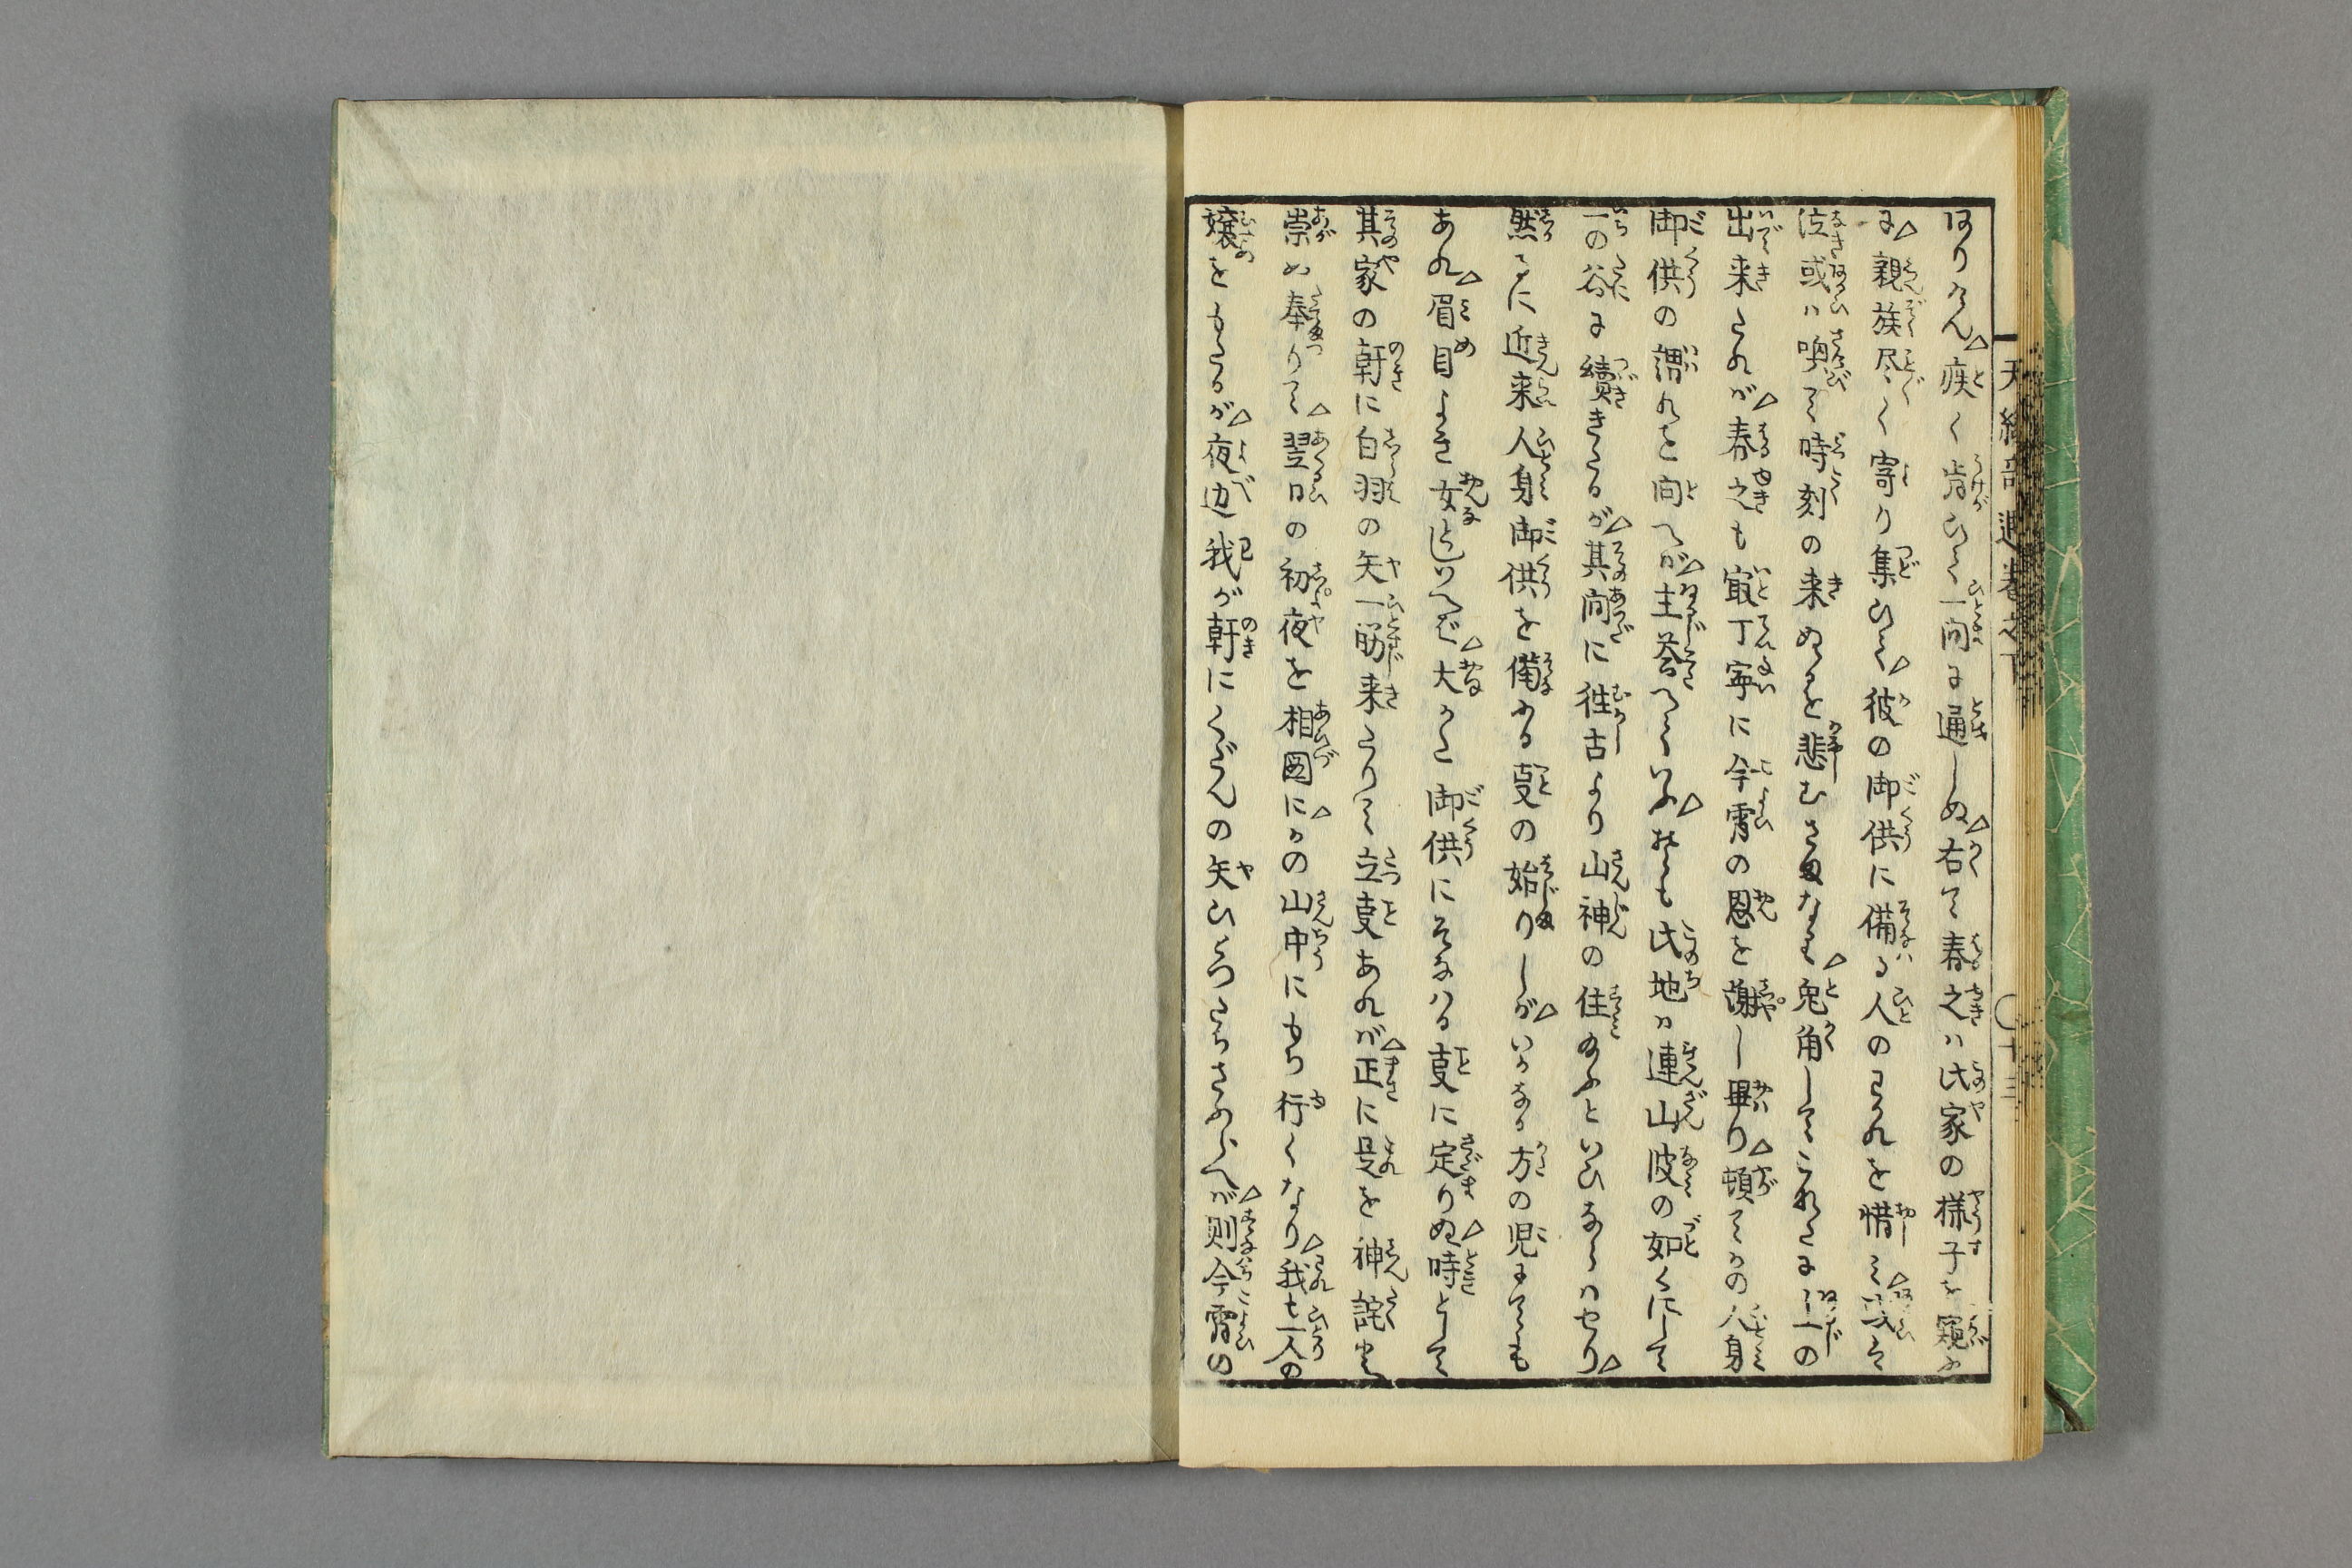 ありけん△疾く肯ひて一間に通しぬ△右て春之ハ此家の様子を窺ふ
に△親族尽〻く寄り集ひて△彼の御供に備る人のわかれを惜みて△或は
泣或ハ喚て時刻の来ぬるを悲むさまなり△兎角してこれさに主の
出来たれバ△春之も最丁寧に今霄の恩を謝し畢り△頓てかの人身
御供の謂れを問へバ△主荅へていふ△おも此地ハ連山波の如くにして
一の谷に續きたるが△其間に徃古より山神の住給ふといひならハせり△
然るに近来人身御供を備ふる事の始りしが△いかなる方の児にても
あれ△眉目よき女としいへバ△大かた御供にそなハる事に定りぬ△時として
其家の軒に白羽の矢一筋来りて立事あれバ△正に是を神詫と
崇め奉りて△翌日の初夜を相図に△かの山中にもち行くなり△我も一人の
嬢をもたるが△夜辺我が軒にくだんの矢ひとつたちさめらへバ△則今霄の
天縁奇遇巻之下 〇十三